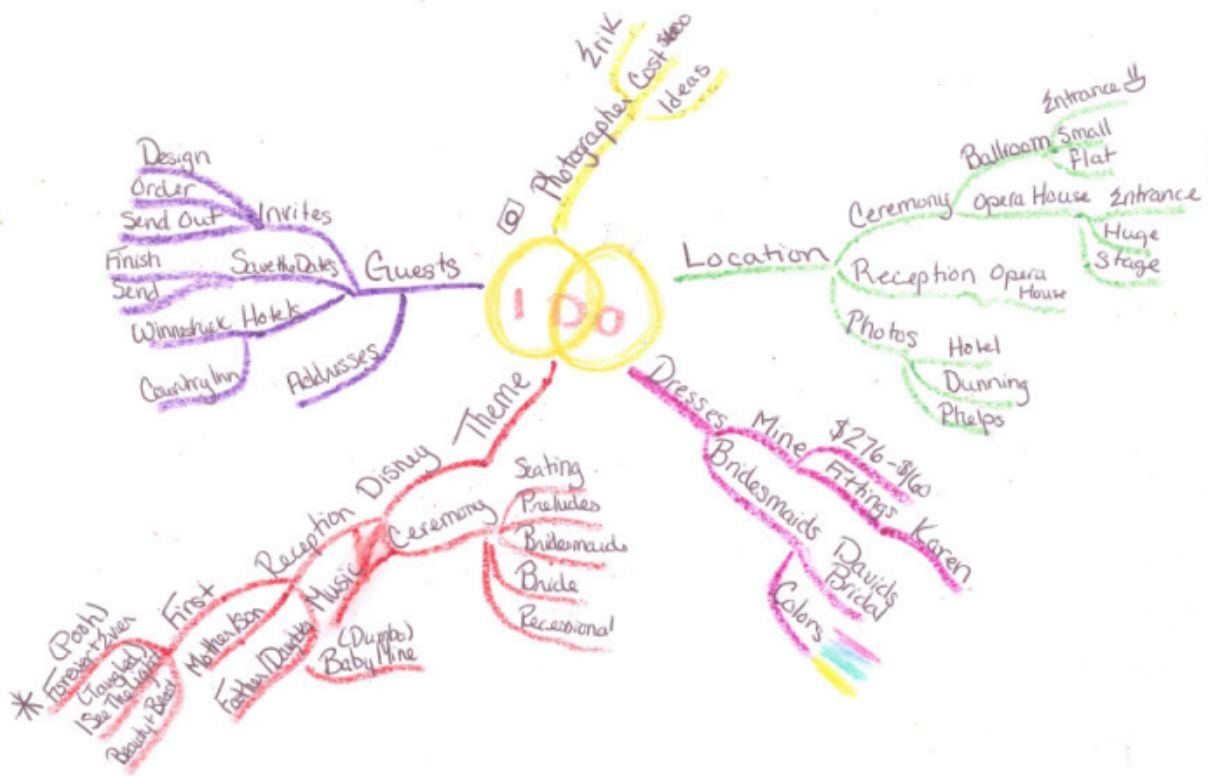 I DO
Photographer
Erik
Cost $600
Ideas
Location
Ceremony
Ballroom
Entrance
Small
flat
Opera House
Entrance
Huge
Stage
Reception
Opera
House
Photos
Hotel
Dunning
Phelps
Dresses
Mine
$276-$160
Fittings
Karen
Bridesmaids
Davids
Bridal
Colors
Theme
Disney
Music
Ceremony
Seating
Preludes
Bridesmaids
Bride
Recessional
Reception
First
(Pooh)
Forever & Ever
(Tangled)
I See The Light
Beauty & Beast
Mother/Son
Father/Daughter
(Dumbo)
Baby Mine
Guests
Invites
Design
Order
Send Out
Save the Dates
Finish
Send
Hotels
Winneshiek
Country Inn
Addresses